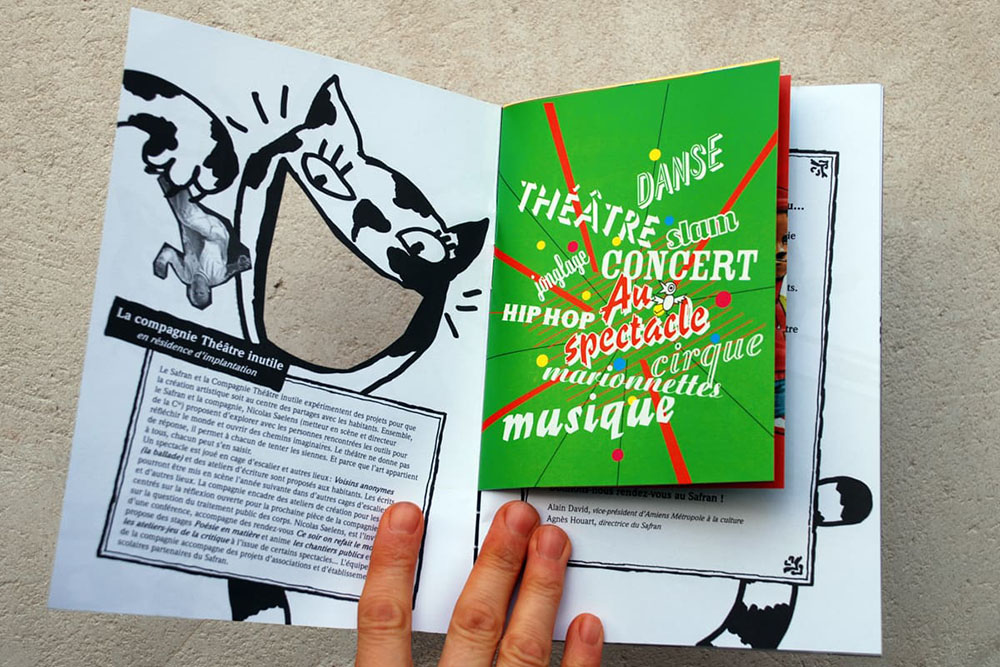 La compagnie Théâtre inutile
en résidence d'implantation
Le Safran et la Compagnie Théâtre inutile expérimentent des projets pour que
la création artistique soit au centre des partages avec les habitants. Ensemble,
le Safran et la compagnie, Nicolas Saelens (metteur en scène et directeur
de la Cie) proposent d'explorer avec les personnes rencontrées les outils pour
réfléchir le monde et ouvrir des chemins imaginaires. Le théâtre ne donne pas
de réponse, il permet à chacun de tenter les siennes. Et parce que l'art appartient
à tous, chacun peut s'en saisir.
Un spectacle est joué en cage d'escalier et autres lieux : Voisins anonymes
(la ballade) et des ateliers d'écriture sont proposés aux habitants. Les écrits
pourront être mis en scène l'année suivante dans d'autres cages d'escalier
et d'autres lieux. La compagnie encadre des ateliers de création pour les
centrés sur la réflexion ouverte pour la prochaine pièce de la compagnie
sur la question du traitement public des corps. Nicolas Saelens, est l'invi
d'une conférence, accompagne des rendez-vous Ce soir on refait le mo
propose des stages Poésie en matière et anime les chantiers publics et
les ateliers jeu de la critique à l'issue de certains spectacles... L'équipe
de la compagnie accompagne des projets d'associations et d'établisseme
scolaires partenaires du Safran.
DANSE
THÉÂTRE
slam
jonglage
CONCERT
HIP HOP
Au
spectacle
cirque
marionnettes
musique
nous rendez-vous au Safran !
Alain David, vice-président d'Amiens Métropole à la culture
Agnès Houart, directrice du Safran